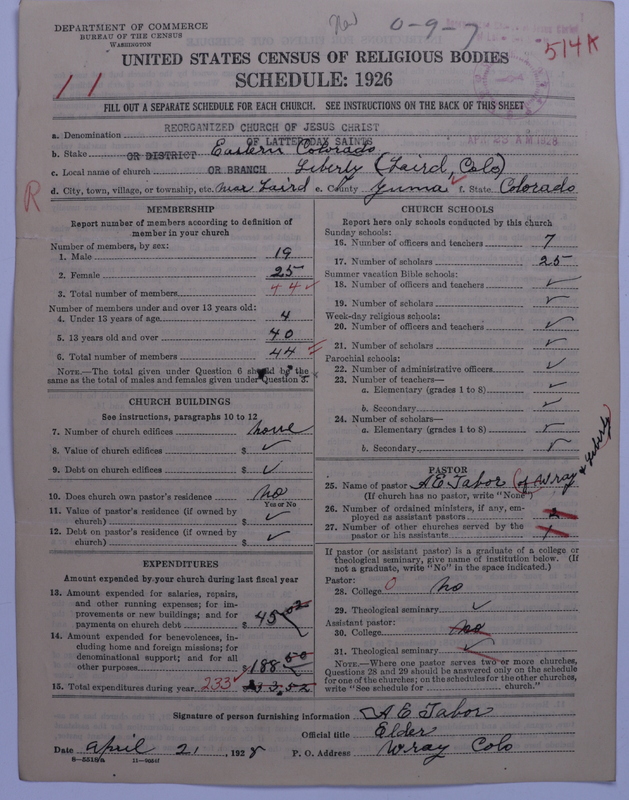 DEPARTMENT OF COMMERCE
BUREAU OF THE CENSUS
WASHINGTON
0-9-7
514A
UNITED STATES CENSUS OF RELIGIOUS BODIES
SCHEDULE: 1926
11
FILL OUT A SEPARATE SCHEDULE FOR EACH CHURCH. SEE INSTRUCTIONS ON THE BACK OF THIS SHEET
a. Denomination REORGANIZED CHURCH OF JESUS CHRIST
OF LATTER DAY SAINTS
b. Stake OR DISTRICT Eastern Colorado
c. Local name of church OR BRANCH Liberty (Laird, Colo)
R
d. City, town, village, or township, etc. near Laird e. County Yuma f. State Colorado
MEMBERSHIP
Report number of members according to definition of
member in your church
Number of members, by sex:
1. Male 19
2. Female 25
3. Total number of members 44
Number of members under and over 13 years old:
4. Under 13 years of age 4
5. 13 years old and over 40
6. Total number of members 44
NOTE.—The total given under Question 6 should be the
same as the total of males and females given under Question 3.
CHURCH BUILDINGS
See instructions, paragraphs 10 to 12
7. Number of church edifices none
8. Value of church edifices $ ✓
9. Debt on church edifices $ ✓
10. Does church own pastor's residence no
Yes or No
11. Value of pastor's residence (if owned by
church) $ ✓
12. Debt on pastor's residence (if owned by
church) $ ✓
EXPENDITURES
Amount expended by your church during last fiscal year
13. Amount expended for salaries, repairs,
and other running expenses; for im-
provements or new buildings; and for
payments on church debt $ 45.02
14. Amount expended for benevolences, in-
cluding home and foreign missions; for
denominational support; and for all
other purposes $ 188.50
15. Total expenditures during year 233 233.52
CHURCH SCHOOLS
Report here only schools conducted by this church
Sunday schools:
16. Number of officers and teachers 7
17. Number of scholars 25
Summer vacation Bible schools:
18. Number of officers and teachers ✓
19. Number of scholars ✓
Week-day religious schools:
20. Number of officers and teachers ✓
21. Number of scholars ✓
Parochial schools:
22. Number of administrative officers ✓
23. Number of teachers—
a. Elementary (grades 1 to 8) ✓
b. Secondary ✓
24. Number of scholars—
a. Elementary (grades 1 to 8) ✓
b. Secondary ✓
PASTOR
25. Name of pastor A E Tabor (of Wray & Liberty
(If church has no pastor, write "None")
26. Number of ordained ministers, if any, em-
ployed as assistant pastors 2
27. Number of other churches served by the
pastor or his assistants 1
If pastor (or assistant pastor) is a graduate of a college or
theological seminary, give name of institution below. (If
not a graduate, write "No" in the space indicated.)
Pastor:
28. College 0 no
29. Theological seminary ✓
Assistant pastor:
30. College no
31. Theological seminary ✓
NOTE.—Where one pastor serves two or more churches,
Questions 28 and 29 should be answered only on the schedule
for one of the churches; on the schedules for the other churches,
write "See schedule for church."
Signature of person furnishing information A E Tabor
Official title Elder
Date April 21, 1928
P. O. Address Wray Colo
8-5518a 11-9034f